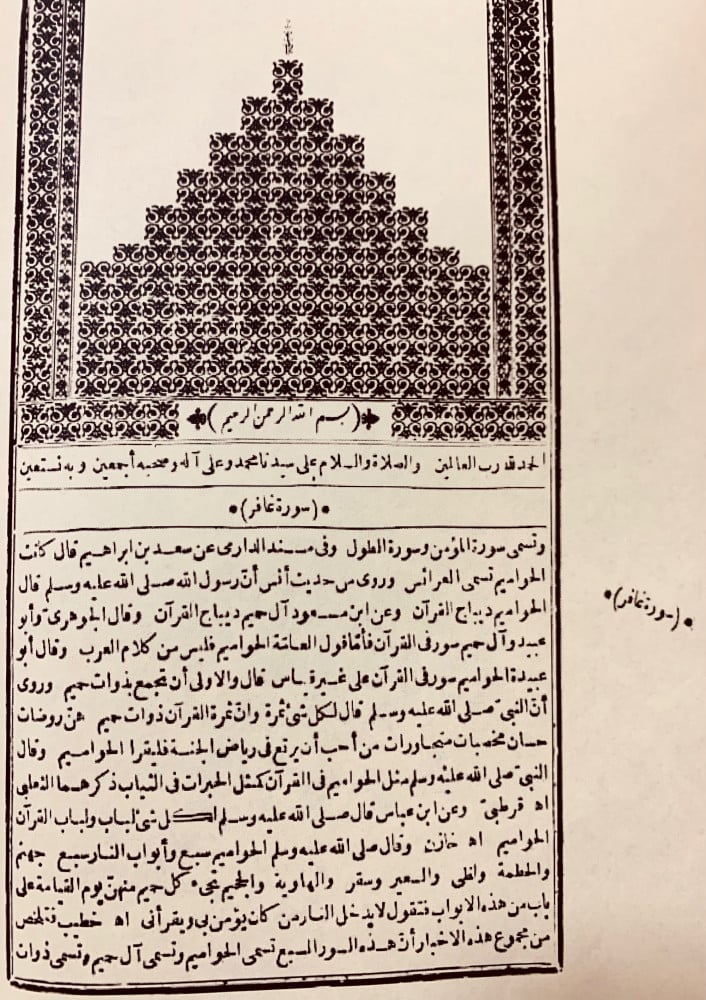 (بسم الله الرحمن الرحيم)
الحمد لله رب العالمين والصلاة والسلام على سيدنا محمد وعلى آله وصحبه أجمعين وبه نستعين
(سورة غافر)
وتسمى سورة المؤمن وسورة الطول وفى مسند الدارمى عن سعد بن ابراهيم قال كانت
الحواميم تسمى العرائس وروى من حديث أنس أنّ رسول الله صلى الله عليه وسلم قال
الحواميم ديباج القرآن وعن ابن مسعود آل حميم ديباج القرآن وقال الجوهرى وأبو
عبيد وآل حميم سور فى القرآن فأمّا قول العامّة الحواميم فليس من كلام العرب وقال أبو
عبيدة الحواميم سور فى القرآن على غير قياس قال والاولى أن تجمع بذوات حميم وروى
أنّ النبىّ صلى الله عليه وسلم قال لكل شئ ثمرة وانّ ثمرة القرآن ذوات حميم هنّ روضات
حسان مخصبات متجاورات من أحب أن يرتع فى رياض الجنة فليقرا الحواميم وقال
النبىّ صلى الله عليه وسلم مثل الحواميم فى القرآن كمثل الحبرات فى الثياب ذكرهما الثعلبى
اه قرطبىّ وعن ابن عباس قال صلى الله عليه وسلم لكل شئ لباب ولباب القرآن
الحواميم اه خازن وقال صلى الله عليه وسلم الحواميم سبع وأبواب النار سبع جهنم
والحطمة ولظى والسعير وسقر والهاوية والجحيم تجىء كل حميم منهنّ يوم القيامة على
باب من هذه الابواب فتقول لا يدخل النار من كان يؤمن بى ويقرأنى اه خطيب فتلخص
من مجموع هذه الاخبار أنّ هذه السور السبع تسمى الحواميم وتسمى آل حميم وتسمى ذوات
(سورة غافر)